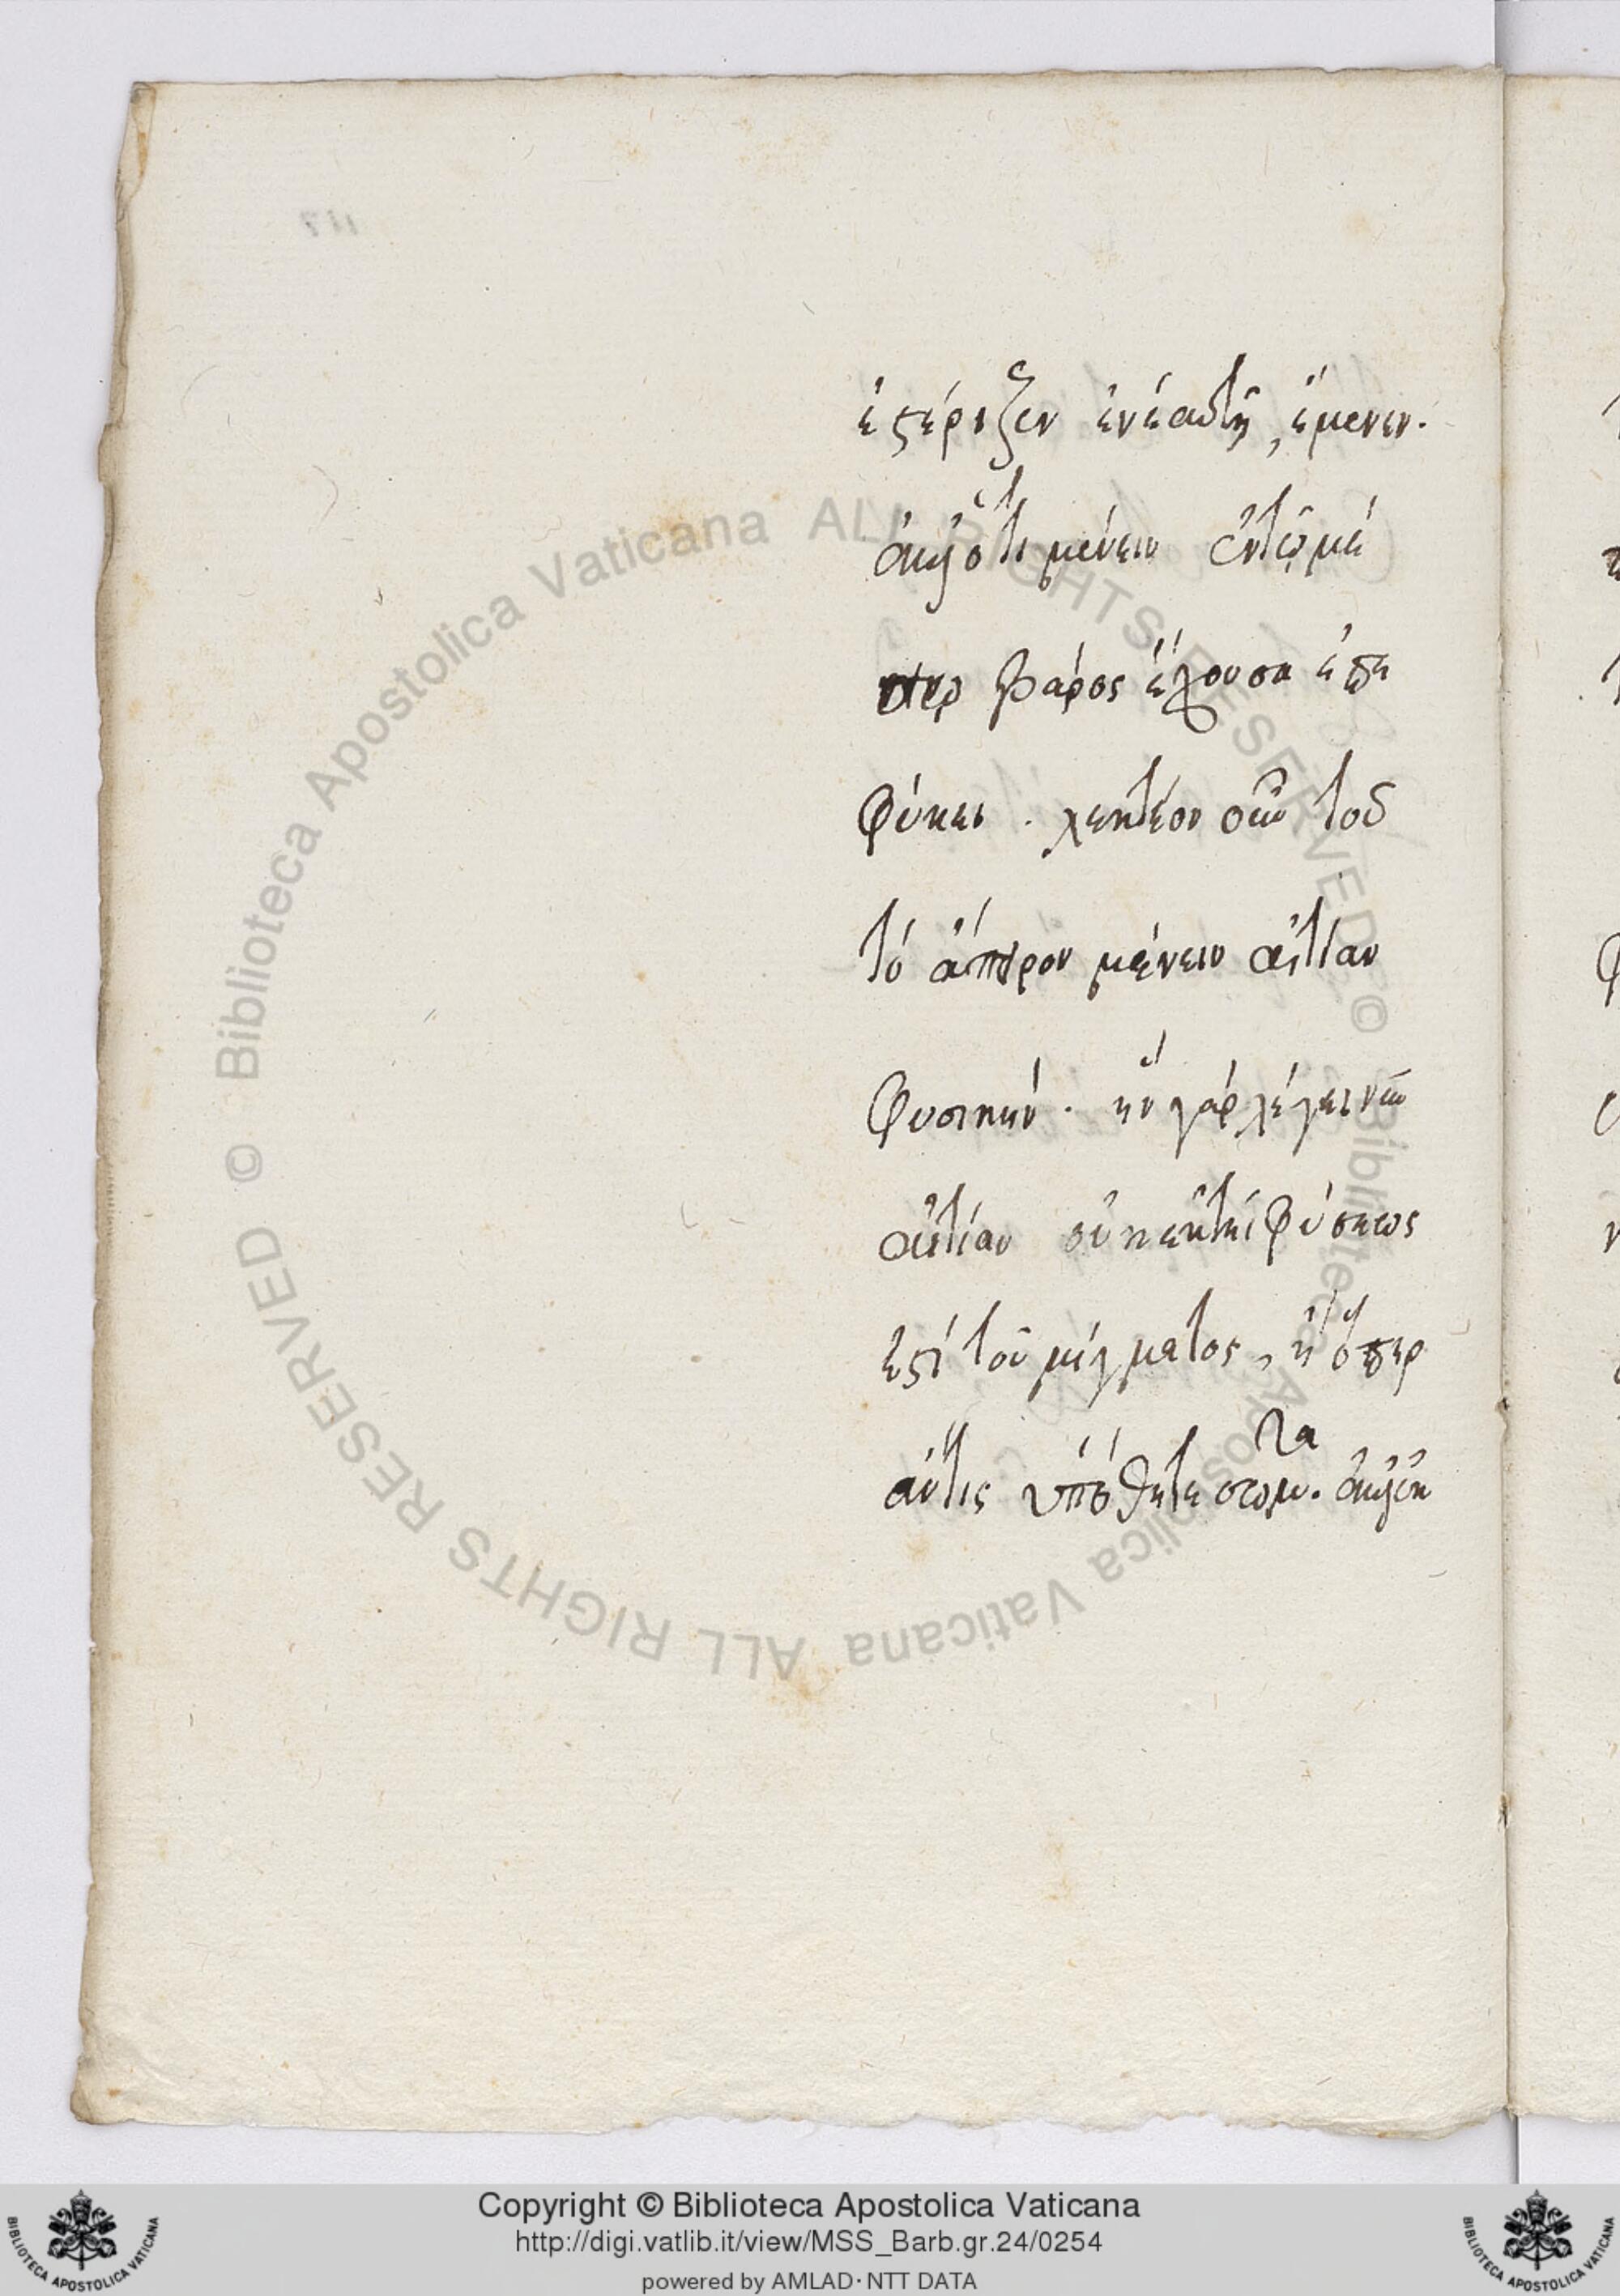 ἐστέριξεν ἐν ἑαυτῇ, ἔμενεν.
ἀλλ' ὅτι μένειν ἐν τῷ μέ
βάρος ἔχουσα ἐπε
φύκει. λεκτέον οὖν τοῦ
τὸ ἄπειρον μένειν αἰτίαν
φυσικήν. ἣν γὰρ λέγει νῦν
αἰτίαν οὐκ ἐκ τῆς φύσεως
ἐστὶ τοῦ μίγματος, ἢ ὅπερ
ἄν τις ὑπόθητε
Copyright © Biblioteca Apostolica Vaticana
http://digi.vatlib.it/view/MSS_Barb.gr.24/0254
powered by AMLAD · NTT DATA
BIBLIOTECA APOSTOLICA VATICANA
BIBLIOTECA APOSTOLICA VATICANA
© Biblioteca Apostolica Vaticana ALL RIGHTS RESERVED © Biblioteca Apostolica Vaticana ALL RIGHTS RESERVED